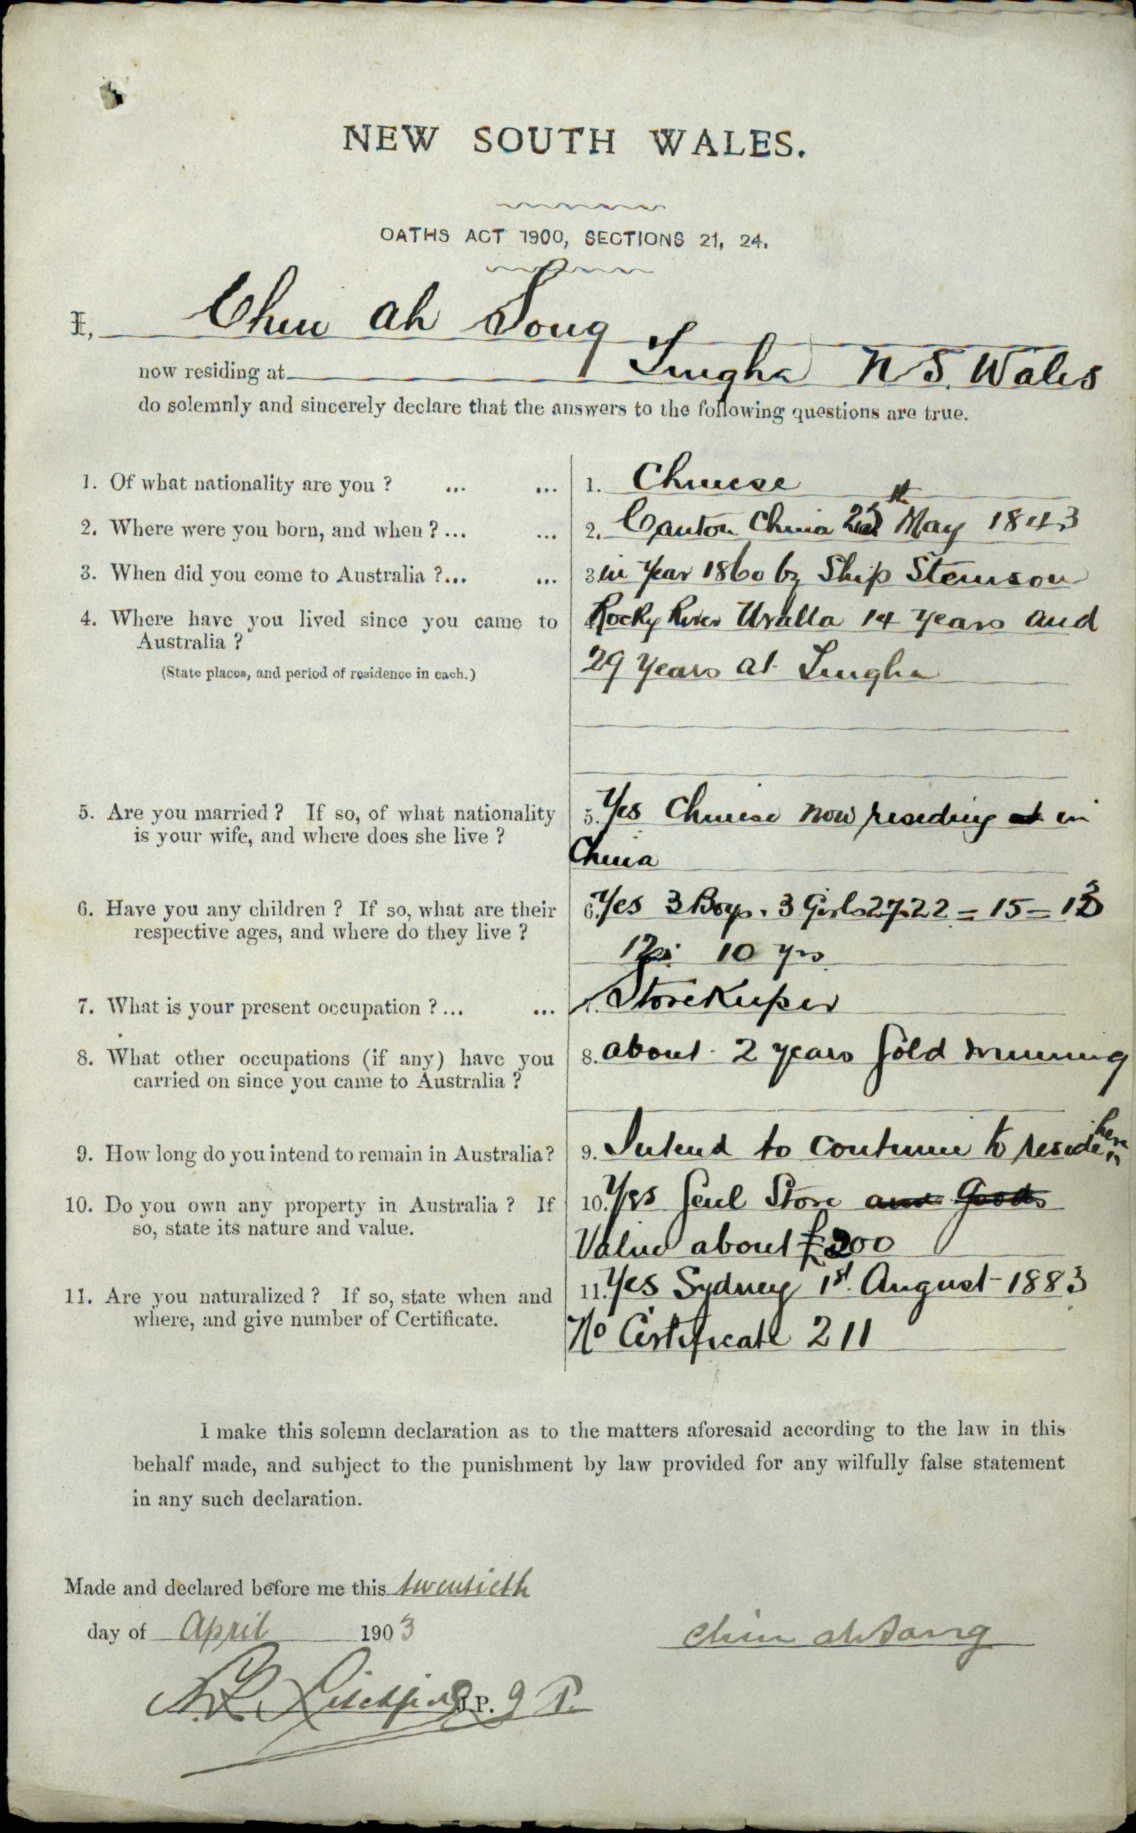 NEW SOUTH WALES.
OATHS ACT 1900, SECTIONS 21, 24.
I, Chin ah Song
now residing at Tingha N S. Wales
do solemnly and sincerely declare that the answers to the following questions are true.
1. Of what nationality are you ? ... ... 1. Chinese
2. Where were you born, and when ? ... ... 2. Canton China th May 1843
3. When did you come to Australia ?... ... 3 in year 1860 by Ship
4. Where have you lived since you came to Rocky River Uralla 14 years and
Australia ? 29 years at Tingha
(State places, and period of residence in each.)
5. Are you married ? If so, of what nationality 5. Yes Chinese now residing at in
is your wife, and where does she live ? China
6. Have you any children ? If so, what are their 6. Yes 3 Boys. 3 Girls 27. 22 = 15 = 13
respective ages, and where do they live ? 12 10 yrs
7. What is your present occupation ? ... ... 7. Storekeeper
8. What other occupations (if any) have you 8. about 2 years Gold mining
carried on since you came to Australia ?
9. How long do you intend to remain in Australia? 9. Intend to continue to reside here
10. Do you own any property in Australia ? If 10. Yes Genl Store and Goods
so, state its nature and value. Value about £200
11. Are you naturalized ? If so, state when and 11. Yes Sydney 1st. August 1883
where, and give number of Certificate. No Certificate 211
I make this solemn declaration as to the matters aforesaid according to the law in this
behalf made, and subject to the punishment by law provided for any wilfully false statement
in any such declaration.
Made and declared before me this twentieth
day of April 1903
chin ah song
J.P.